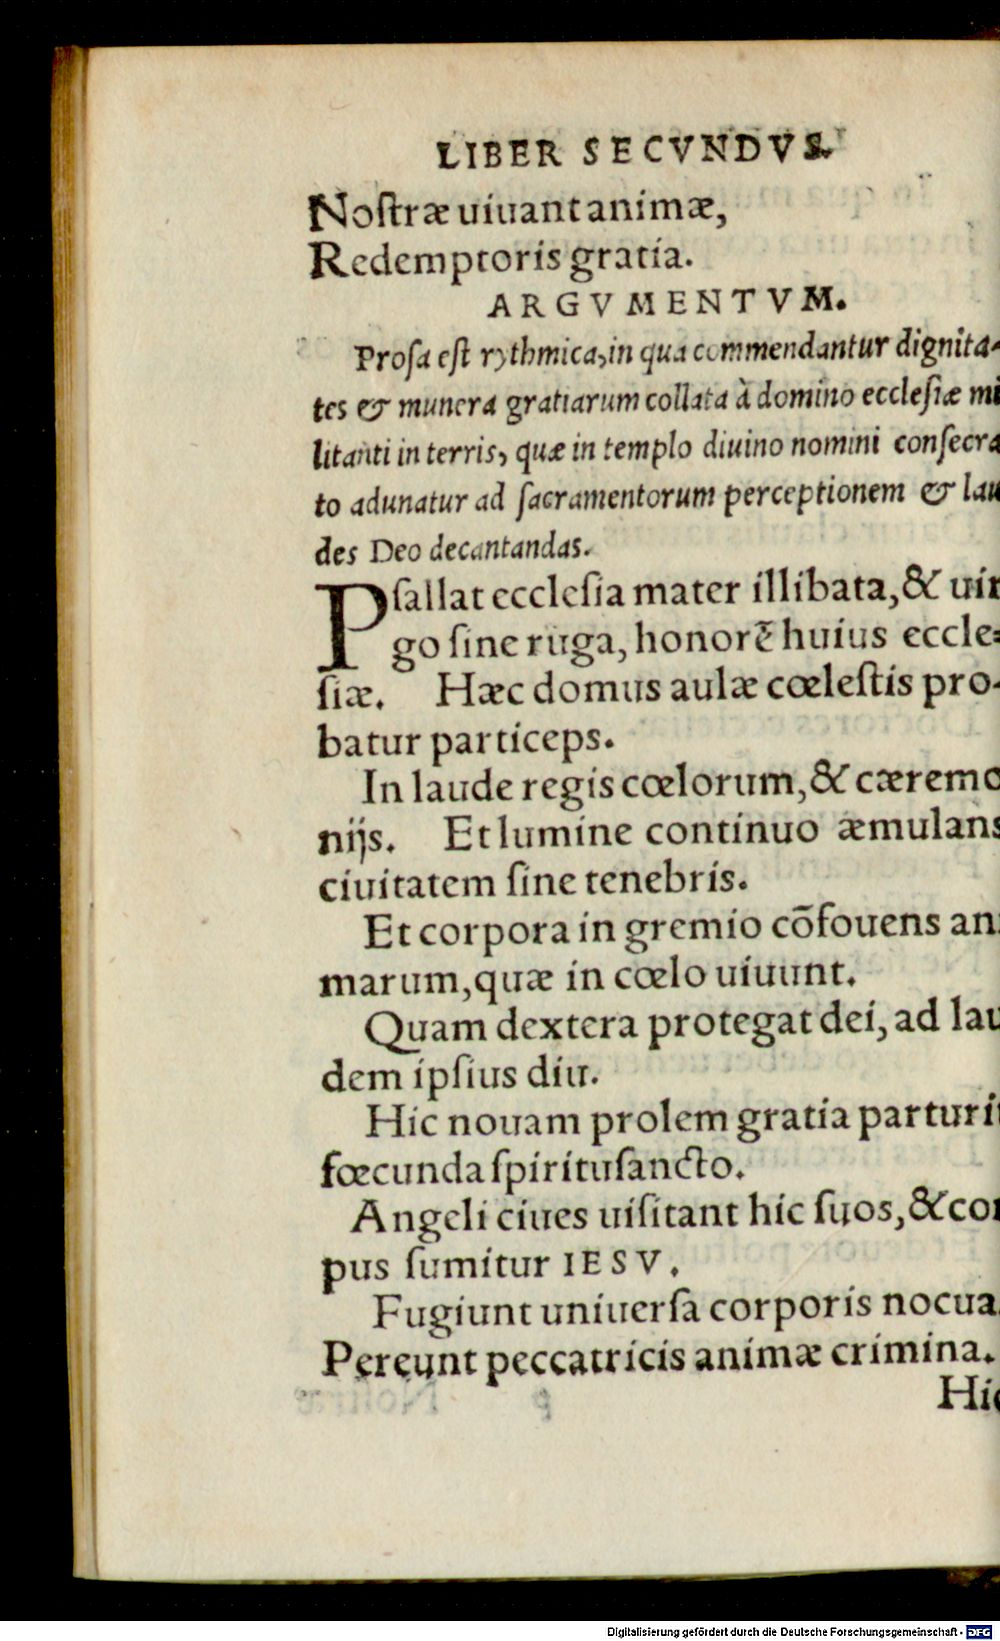 LIBER SECVNDVS.
Noſtræ uiuant animæ,
Redemptoris gratia.
ARGVMENTVM.
Proſa eſt rythmica, in qua commendantur dignita-
tes & munera gratiarum collata à domino eccleſiæ mi
litanti in terris, quæ in templo diuino nomini conſecra
to adunatur ad ſacramentorum perceptionem & lau
des Deo decantandas.
Pſallat eccleſia mater illibata, & uir
go ſine ruga, honorē huius eccle=
ſiæ. Hæc domus aulæ cœleſtis pro-
batur particeps.
In laude regis cœlorum, & cæremo
nijs. Et lumine continuo æmulans
ciuitatem ſine tenebris.
Et corpora in gremio cōfouens ani
marum, quæ in cœlo uiuunt.
Quam dextera protegat dei, ad lau
dem ipſius diu.
Hic nouam prolem gratia parturit
fœcunda ſpirituſancto.
Angeli ciues uiſitant hic ſuos, & cor
pus ſumitur IESV.
Fugiunt uniuerſa corporis nocua.
Pereunt peccatricis animæ crimina.
Hic
Digitalisierung gefördert durch die Deutsche Forschungsgemeinschaft - DFG